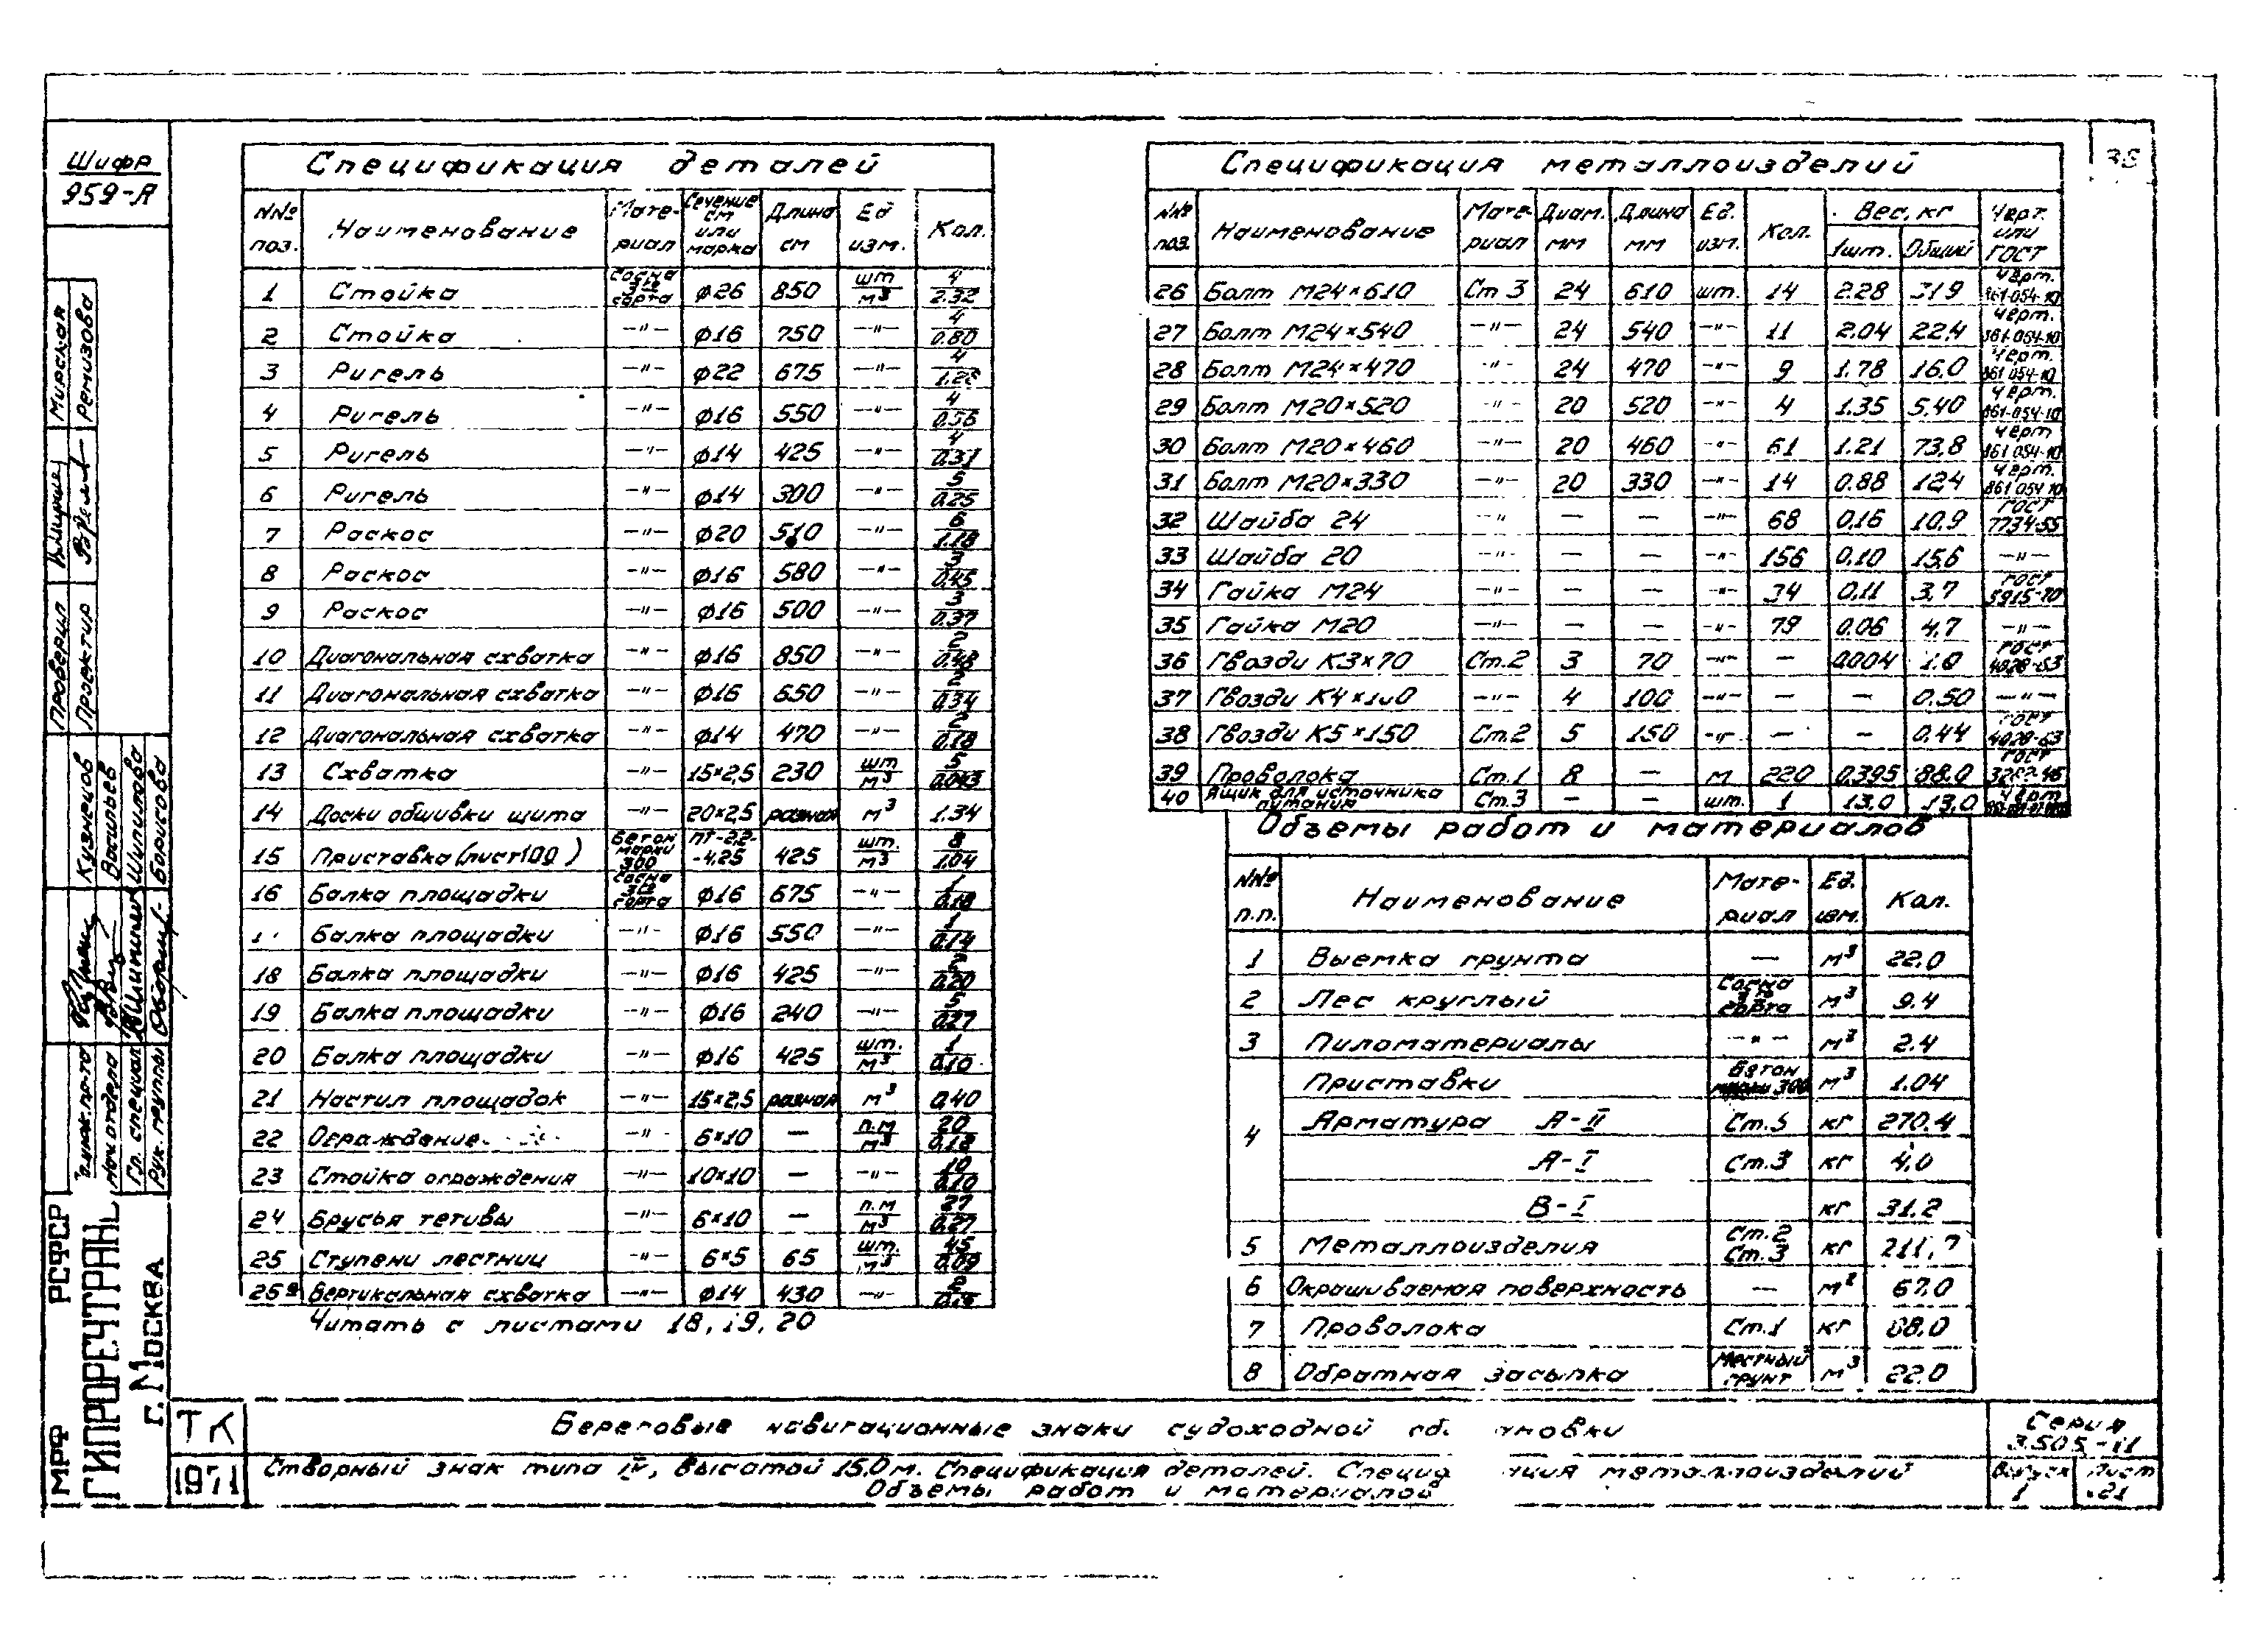 38
Шифр
959-А
Спецификация деталей
№№ поз. Наименование Мате-риал Сечение см или марка Длина см Ед изм. Кол.
1 Стойка Сосна сорта ф26 850 шт/м³ 4/2.32
2 Стойка —"— ф16 750 —"— 4/0.80
3 Ригель —"— ф22 675 —"— 4/1.28
4 Ригель —"— ф16 550 —"— 4/0.56
5 Ригель —"— ф14 425 —"— 4/0.31
6 Ригель —"— ф14 300 —"— 5/0.25
7 Раскос —"— ф20 510 —"— 6/1.18
8 Раскос —"— ф16 580 —"— 3/0.45
9 Раскос —"— ф16 500 —"— 3/0.37
10 Диагональная схватка —"— ф16 850 —"— 2/0.48
11 Диагональная схватка —"— ф16 650 —"— 2/0.34
12 Диагональная схватка —"— ф14 470 —"— 2/0.18
13 Схватка —"— 15×2,5 230 шт/м³ 5/0.043
14 Доски обшивки щита —"— 20×2,5 разная м³ 1.34
15 Приставка (лист100) Бетон марки 300 ПТ-2,2-4,25 425 шт./м³ 8/1.04
16 Балка площадки Сосна сорта ф16 675 —"— 1/0.18
Балка площадки —"— ф16 550 —"— 1/0.14
18 Балка площадки —"— ф16 425 —"— 2/0.20
19 Балка площадки —"— ф16 240 —"— 5/0.27
20 Балка площадки —"— ф16 425 шт./м³ 1/0.10
21 Настил площадок —"— 15×2,5 разная м³ 0,40
22 Ограждение —"— 6×10 — п.м/м³ 20/0.12
23 Стойка ограждения —"— 10×10 — —"— 10/0.10
24 Брусья тетивы —"— 6×10 — п.м/м³ 27/0.27
25 Ступени лестниц —"— 6×5 65 шт./м³ 45/0.09
25а Вертикальная схватка —"— ф14 430 —"— 2/
Читать с листами 18, 19, 20
Спецификация металлоизделий
№№ поз. Наименование Мате-риал Диам. мм Длина мм Ед. изм. Кол. Вес, кг 1шт. Общий Черт. или ГОСТ
26 Болт М24×610 Ст 3 24 610 шт. 14 2.28 31.9 Черт. 861-054-10
27 Болт М24×540 —"— 24 540 —"— 11 2.04 22,4 Черт. 861-054-10
28 Болт М24×470 —"— 24 470 —"— 9 1.78 16.0 Черт. 861-054-10
29 Болт М20×520 —"— 20 520 —"— 4 1.35 5.40 Черт. 861-054-10
30 Болт М20×460 —"— 20 460 —"— 61 1.21 73,8 Черт 861-054-10
31 Болт М20×330 —"— 20 330 —"— 14 0.88 12.4 Черт. 861-054-10
32 Шайба 24 —"— — — —"— 68 0,16 10.9 ГОСТ 7734-55
33 Шайба 20 —"— — — —"— 156 0,10 15,6 —"—
34 Гайка М24 —"— — — —"— 34 0,11 3,7 ГОСТ 5915-70
35 Гайка М20 —"— — — —"— 79 0.06 4,7 —"—
36 Гвозди К3×70 Ст.2 3 70 —"— — 0.004 1.0 ГОСТ 4028-63
37 Гвозди К4×100 —"— 4 100 —"— — — 0.50 —"—
38 Гвозди К5×150 Ст.2 5 150 —"— — — 0.44 ГОСТ 4028-63
39 Проволока Ст.1 8 — м 220 0.395 88.0 ГОСТ 3282-46
40 Ящик для источника питания Ст.3 — — шт. 1 13,0 13,0 Черт
Объемы работ и материалов
№№ п.п. Наименование Мате-риал Ед. изм. Кол.
1 Выемка грунта — м³ 22.0
2 Лес круглый Сосна сорта м³ 9.4
3 Пиломатериалы —"— м³ 2.4
4 Приставки Бетон марки 300 м³ 1.04
Арматура А-II Ст.5 кг 270.4
А-I Ст.3 кг 4.0
В-I кг 31.2
5 Металлоизделия Ст.2 Ст.3 кг 211,7
6 Окрашиваемая поверхность — м² 67.0
7 Проволока Ст.1 кг 88.0
8 Обратная засыпка Местный грунт м³ 22.0
Мирская
Ремизова
Проверил
Проектир
Кузнецов
Васильев
Шипилова
Борисова
Нач отдела
Гл. специал
Рук. группы
МРФ РСФСР
ГИПРОРЕЧТРАНС
г. Москва
ТК
1971
Береговые навигационные знаки судоходной об новки
Створный знак типа IV, высотой 15.0 м. Спецификация деталей. Специф ция металлоизделий
Объемы работ и материалов
Серия
3.505-11
Выпуск Лист
1 21